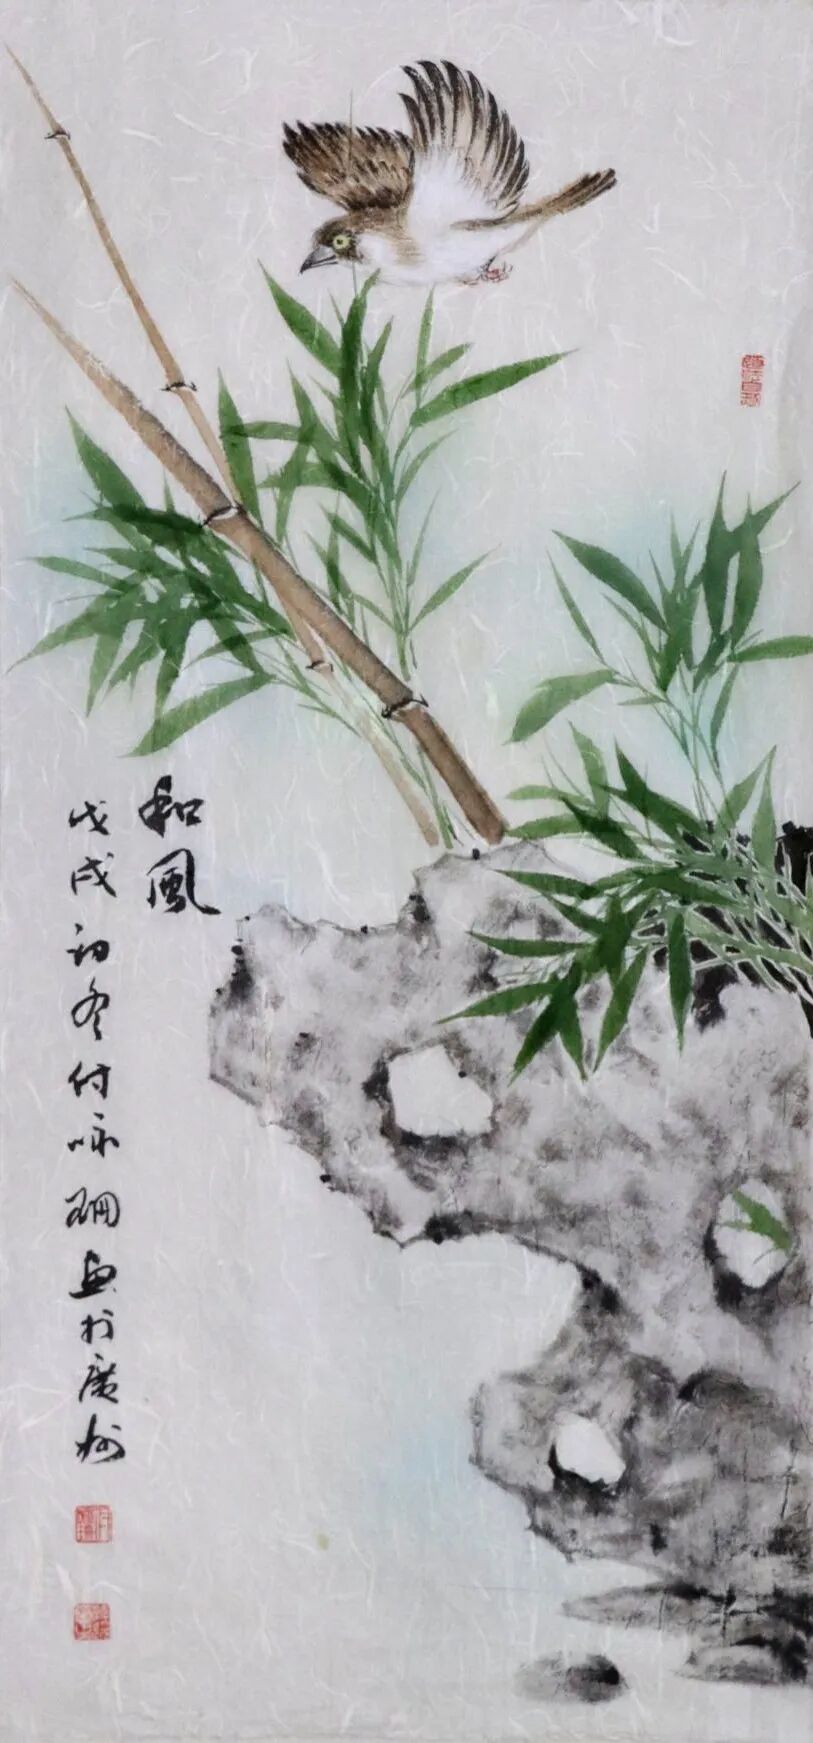 和風
戊戌初冬付咏珊画於廣州